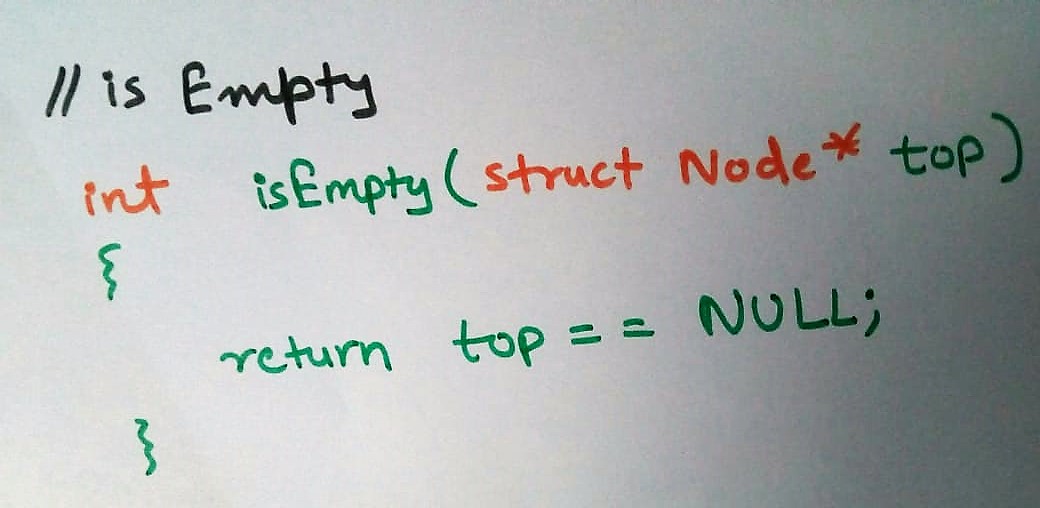 // is Empty
int isEmpty(struct Node* top)
{
return top == NULL;
}